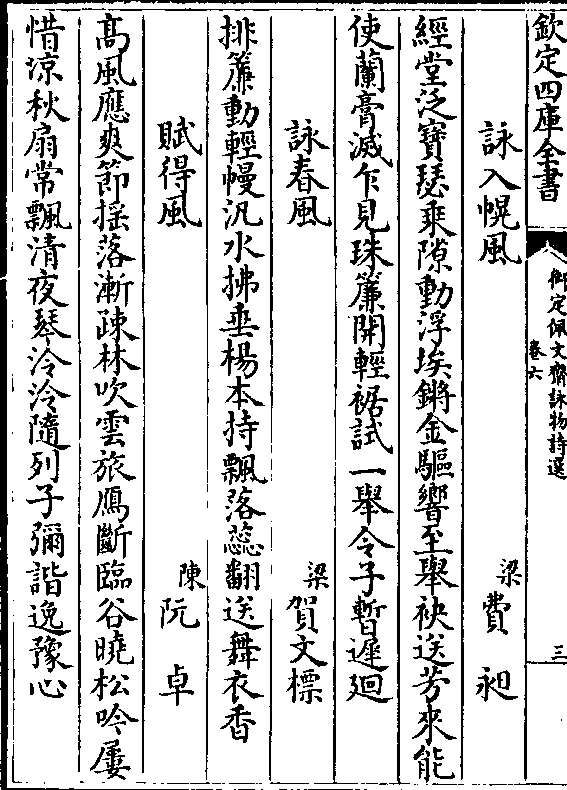 欽定四庫全書
御定佩文齋詠物詩選
卷六
三
詠入幌風
梁費昶
經堂泛寶瑟乘隙動浮埃鏘金驅響至舉袂送芳來能
使蘭膏滅乍見珠簾開輕裾試一舉令子暫遲廻
詠春風
梁賀文標
排簾動輕幔汎水拂垂楊本持飄落蕊翻送舞衣香
賦得風
陳阮卓
高風應爽節揺落漸疎林吹雲旅鴈斷臨谷曉松吟屢
惜凉秋扇常飄清夜琴泠泠隨列子彌諧逸豫心